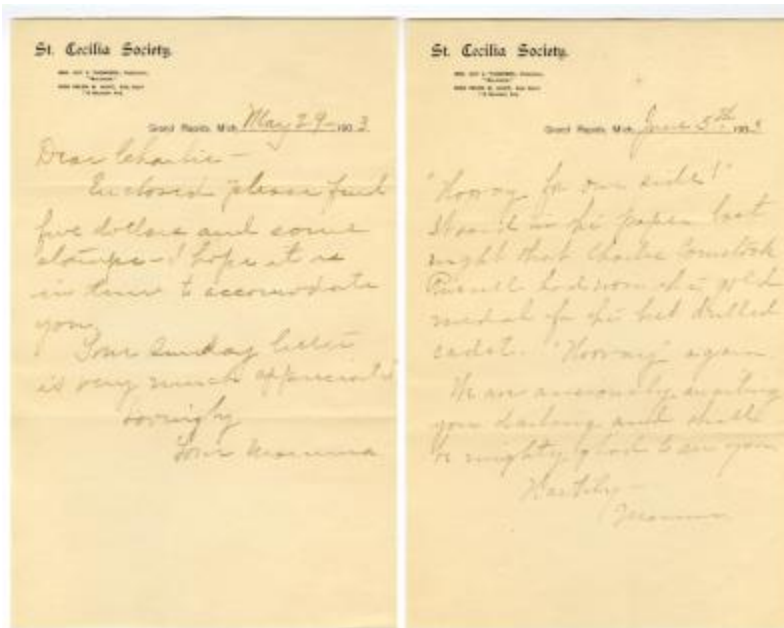 St. Cecilia Society.
Grand Rapids, Mich. May 29 1903
Dear Charlie –
Enclosed please find
five dollars and some
stamps – I hope it is
in time to accomodate
you.
Your Sunday letter
is very much appreciated
Lovingly
Your Mamma
St. Cecilia Society.
Grand Rapids, Mich. June 5th 1903
"Hooray for our side!"
It said in the paper last
night that Charlie Comstock
had won the gold
medal for the best drilled
cadet. "Hooray" again
We are anxiously awaiting
you darling and shall
be mighty glad to see you
Mamma